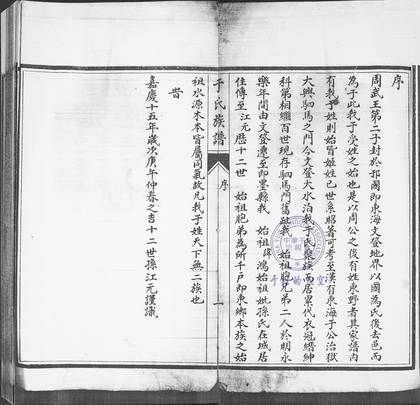 序
周武王第二子封於邘國即東海文登地界以國為氏後去邑而
為于此我于受姓之始也是以周公之後有姓東野者其家譜內
有我于姓則始皆姬姓已世系昭著可考至漢有東海于公治獄
大興駟馬之門今文登大水泊我于氏聚族而居累代衣冠縉紳
科第相繼百世現存駟馬門舊趾我 始祖胞兄弟二人於明永
樂年間由文登遷至即墨縣我 始祖諱鴻始祖妣孫氏在城居
住傳至江元歷十二世 始祖胞弟為所千戶即東鄉本族之始
于氏族譜
序
一
祖水源木本皆屬同氣故凡我于姓天下無二族也
旹
嘉慶十五年歲次庚午仲春之吉十二世孫江元謹識